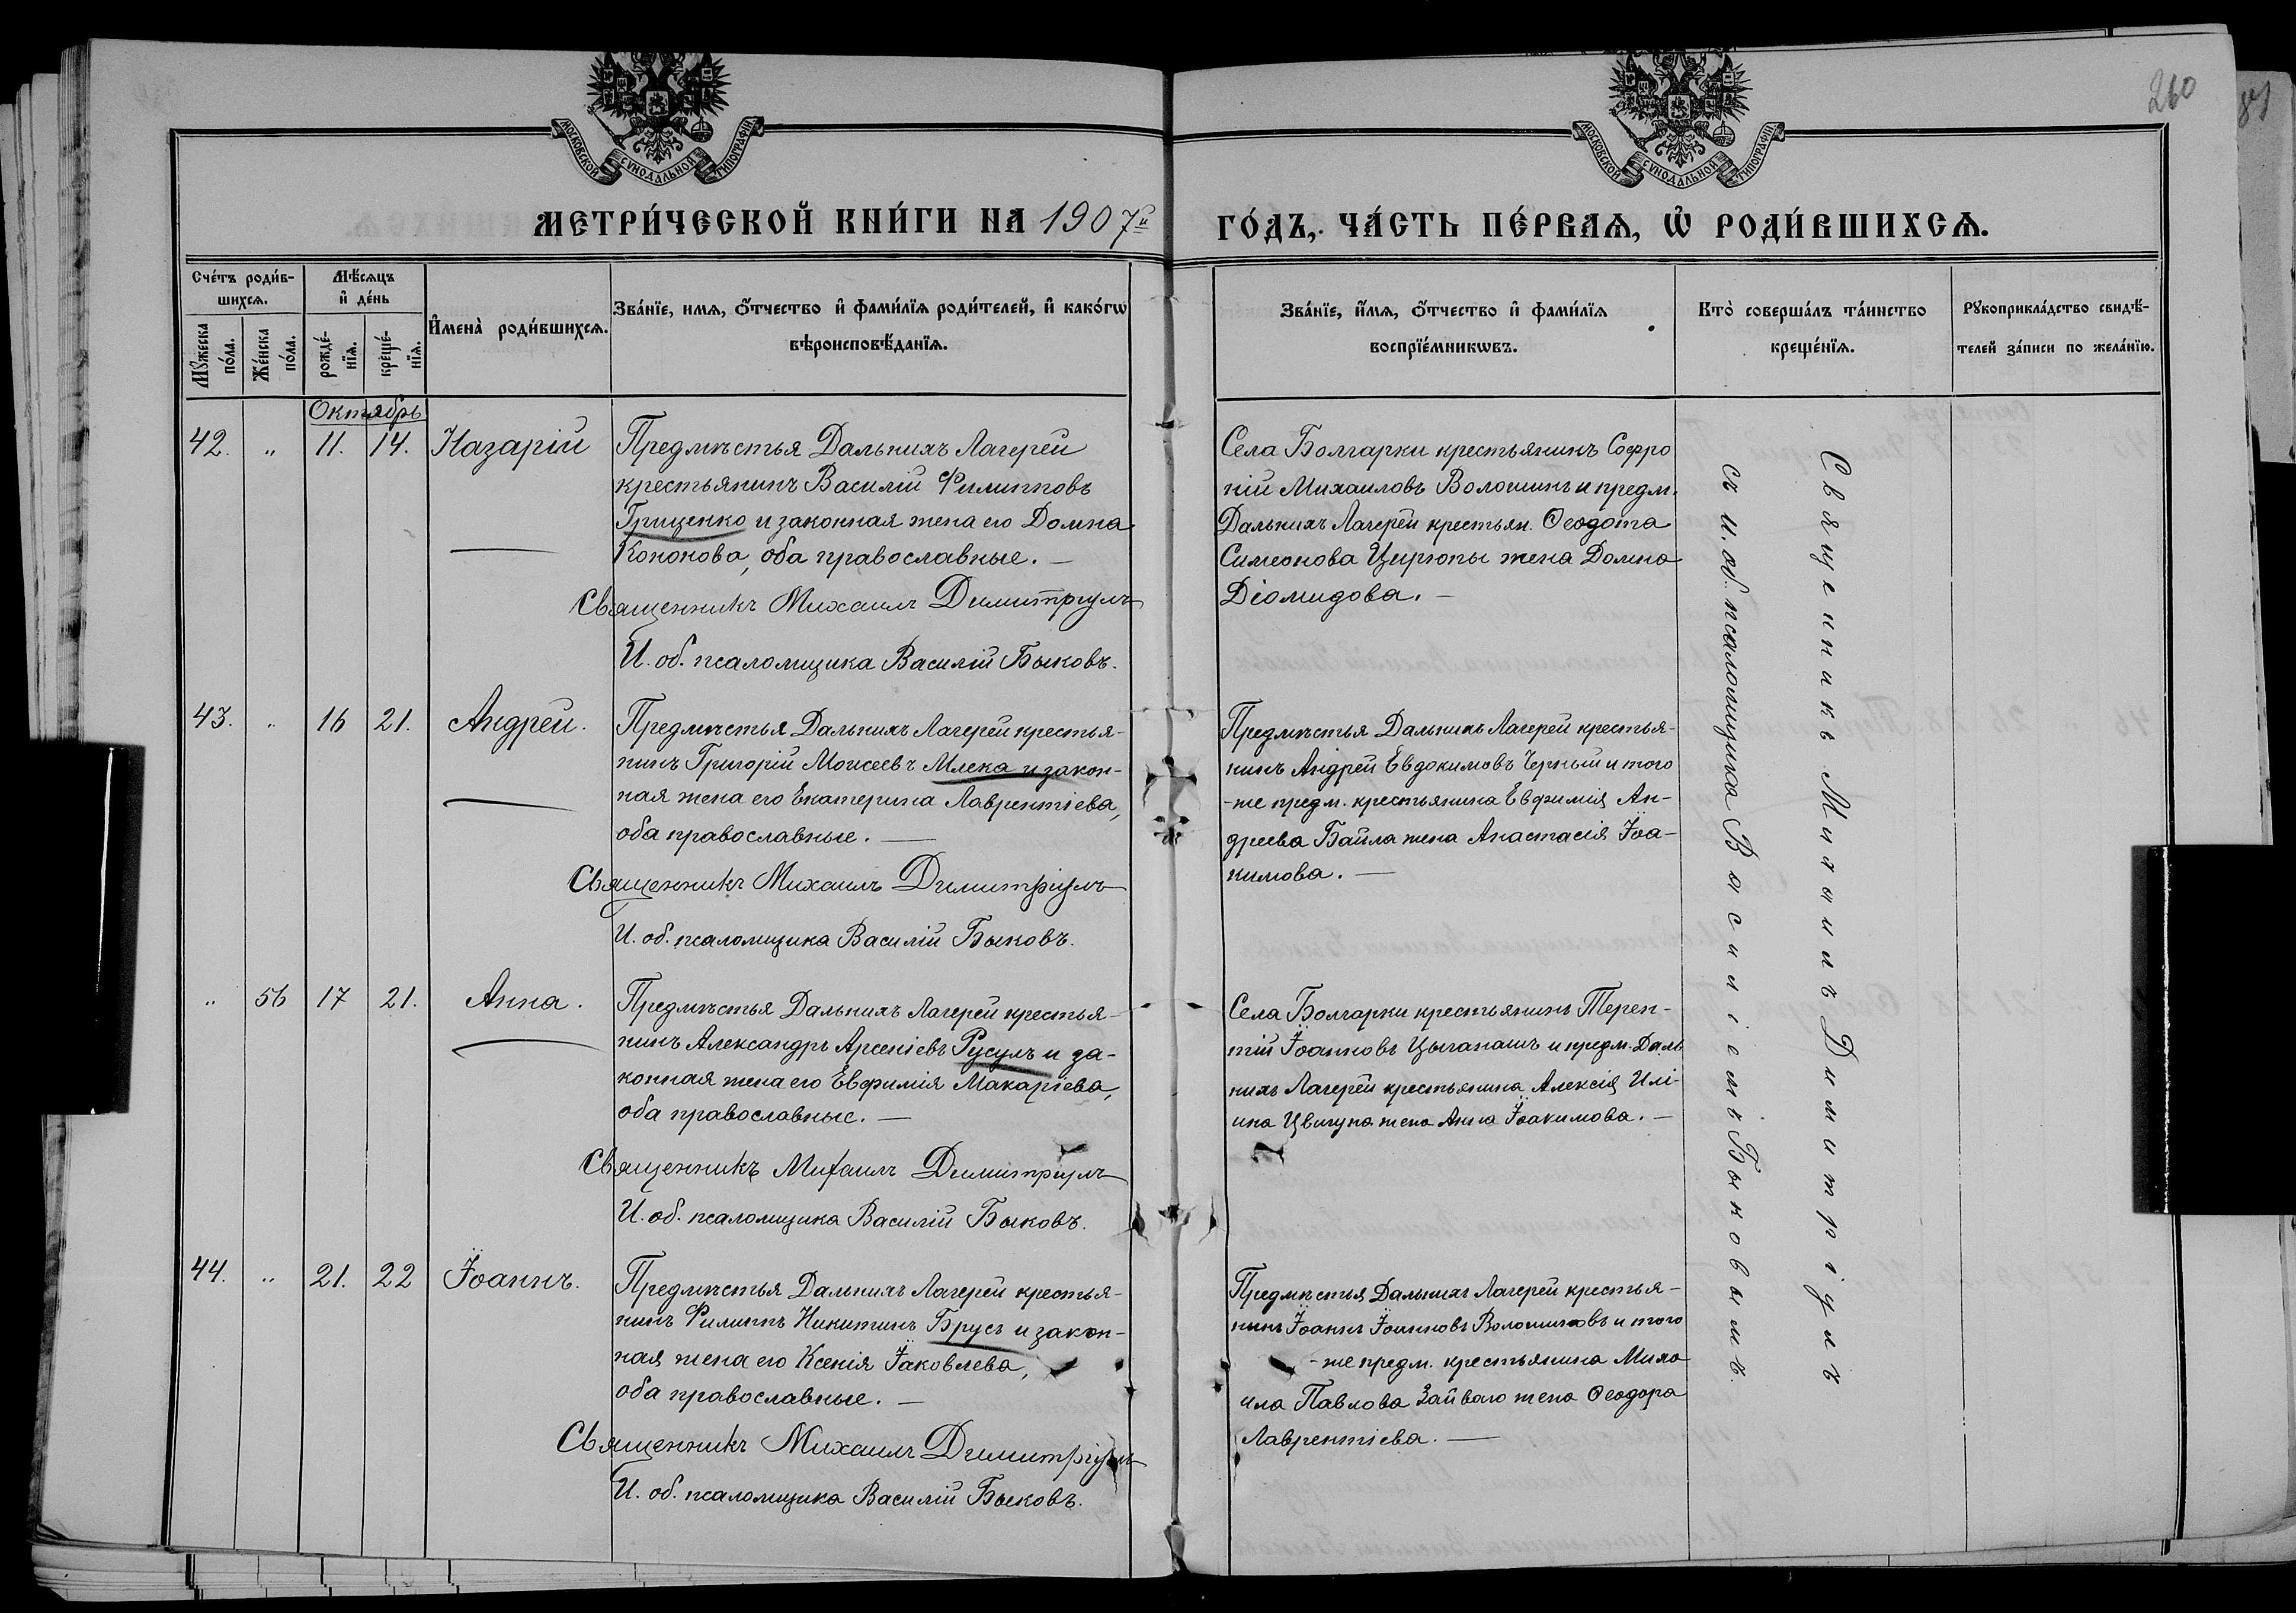 260
МОСКОВСКОЙ СѴНОДАЛЬНОЙ ТИПОГРАФІИ
МОСКОВСКОЙ СѴНОДАЛЬНОЙ ТИПОГРАФІИ
МЕТРИ́ЧЕСКОЙ КНИ́ГИ НА 1907й
ГО́ДЪ, ЧА́СТЬ ПЕ́РВАѦ, Ѡ҆ РОДИ́ВШИХСѦ.
Сче́тъ роди́в-
шихсѧ.
Мꙋ́жеска
по́ла.
Же́нска
по́ла.
Мѣ́сѧцъ
и҆ де́нь
рожде́-
нїѧ.
креще́-
нїѧ.
И҆мена̀ роди́вшихсѧ.
Зва́нїе, имѧ, ѻ҆́тчество и҆ фами́лїѧ роди́телей, и҆ како́гѡ
вѣроисповѣ́данїѧ.
Зва́нїе, и҆́мѧ, ѻ҆́тчество и҆ фами́лїѧ
воспрїе́мникѡвъ.
Кто̀ соверша́лъ та́инство
креще́нїѧ.
Рꙋкоприкла́дство свидѣ́-
телей за́писи по жела́нїю.
Октябрь
42. „ 11. 14. Назарій
Предмѣстья Дальнихъ Лагерей
крестьянинъ Василій Филипповъ
Грищенко и законная жена его Домна
Кононова, оба православные. —
Священникъ Михаилъ Димитріулъ
И. об. псаломщика Василій Быковъ.
Села Болгарки крестьянинъ Софро
ній Михаиловъ Волошинъ и предм.
Дальнихъ Лагерей крестьян. Ѳеодота
Симеонова Цирюпы жена Домна
Діомидова. —
43. „ 16 21. Андрей.
Предмѣстья Дальнихъ Лагерей крестья-
нинъ Григорій Моисеевъ Млека и закон-
ная жена его Екатерина Лаврентіева,
оба православные. —
Священникъ Михаилъ Димитріулъ
И. об. псаломщика Василій Быковъ.
Предмѣстья Дальнихъ Лагерей крестья-
нинъ Андрей Евдокимовъ Черный и того
-же предм. крестьянина Евфимія Ан-
дреева Байла жена Анастасія Іоа-
кимова. —
„ 56 17 21. Анна.
Предмѣстья Дальнихъ Лагерей крестья-
нинъ Александръ Арсеніевъ Русулъ и за-
конная жена его Евфимія Макаріева,
оба православные. —
Священникъ Михаилъ Димитріулъ
И. об. псаломщика Василій Быковъ.
Села Болгарки крестьянинъ Терен-
тій Іоанновъ Цыганашъ и предм. Даль
нихъ Лагерей крестьянина Алексія Илі-
ина Цвигуна жена Анна Іоакимова. —
44. „ 21. 22 Іоаннъ.
Предмѣстья Дальнихъ Лагерей крестья-
нинъ Филиппъ Никитинъ Брусъ и закон-
ная жена его Ксенія Іаковлева,
оба православные. —
Священникъ Михаилъ Димитріулъ
И. об. псаломщика Василій Быковъ.
Предмѣстья Дальнихъ Лагерей крестья-
нинъ Іоаннъ Іоанновъ Волошиновъ и того
-же предм. крестьянина Миха
ила Павлова жена Ѳеодора
Лаврентіева. —
Священникъ Михаилъ Димитріулъ
съ и. об. псаломщика Василіемъ Быковымъ.